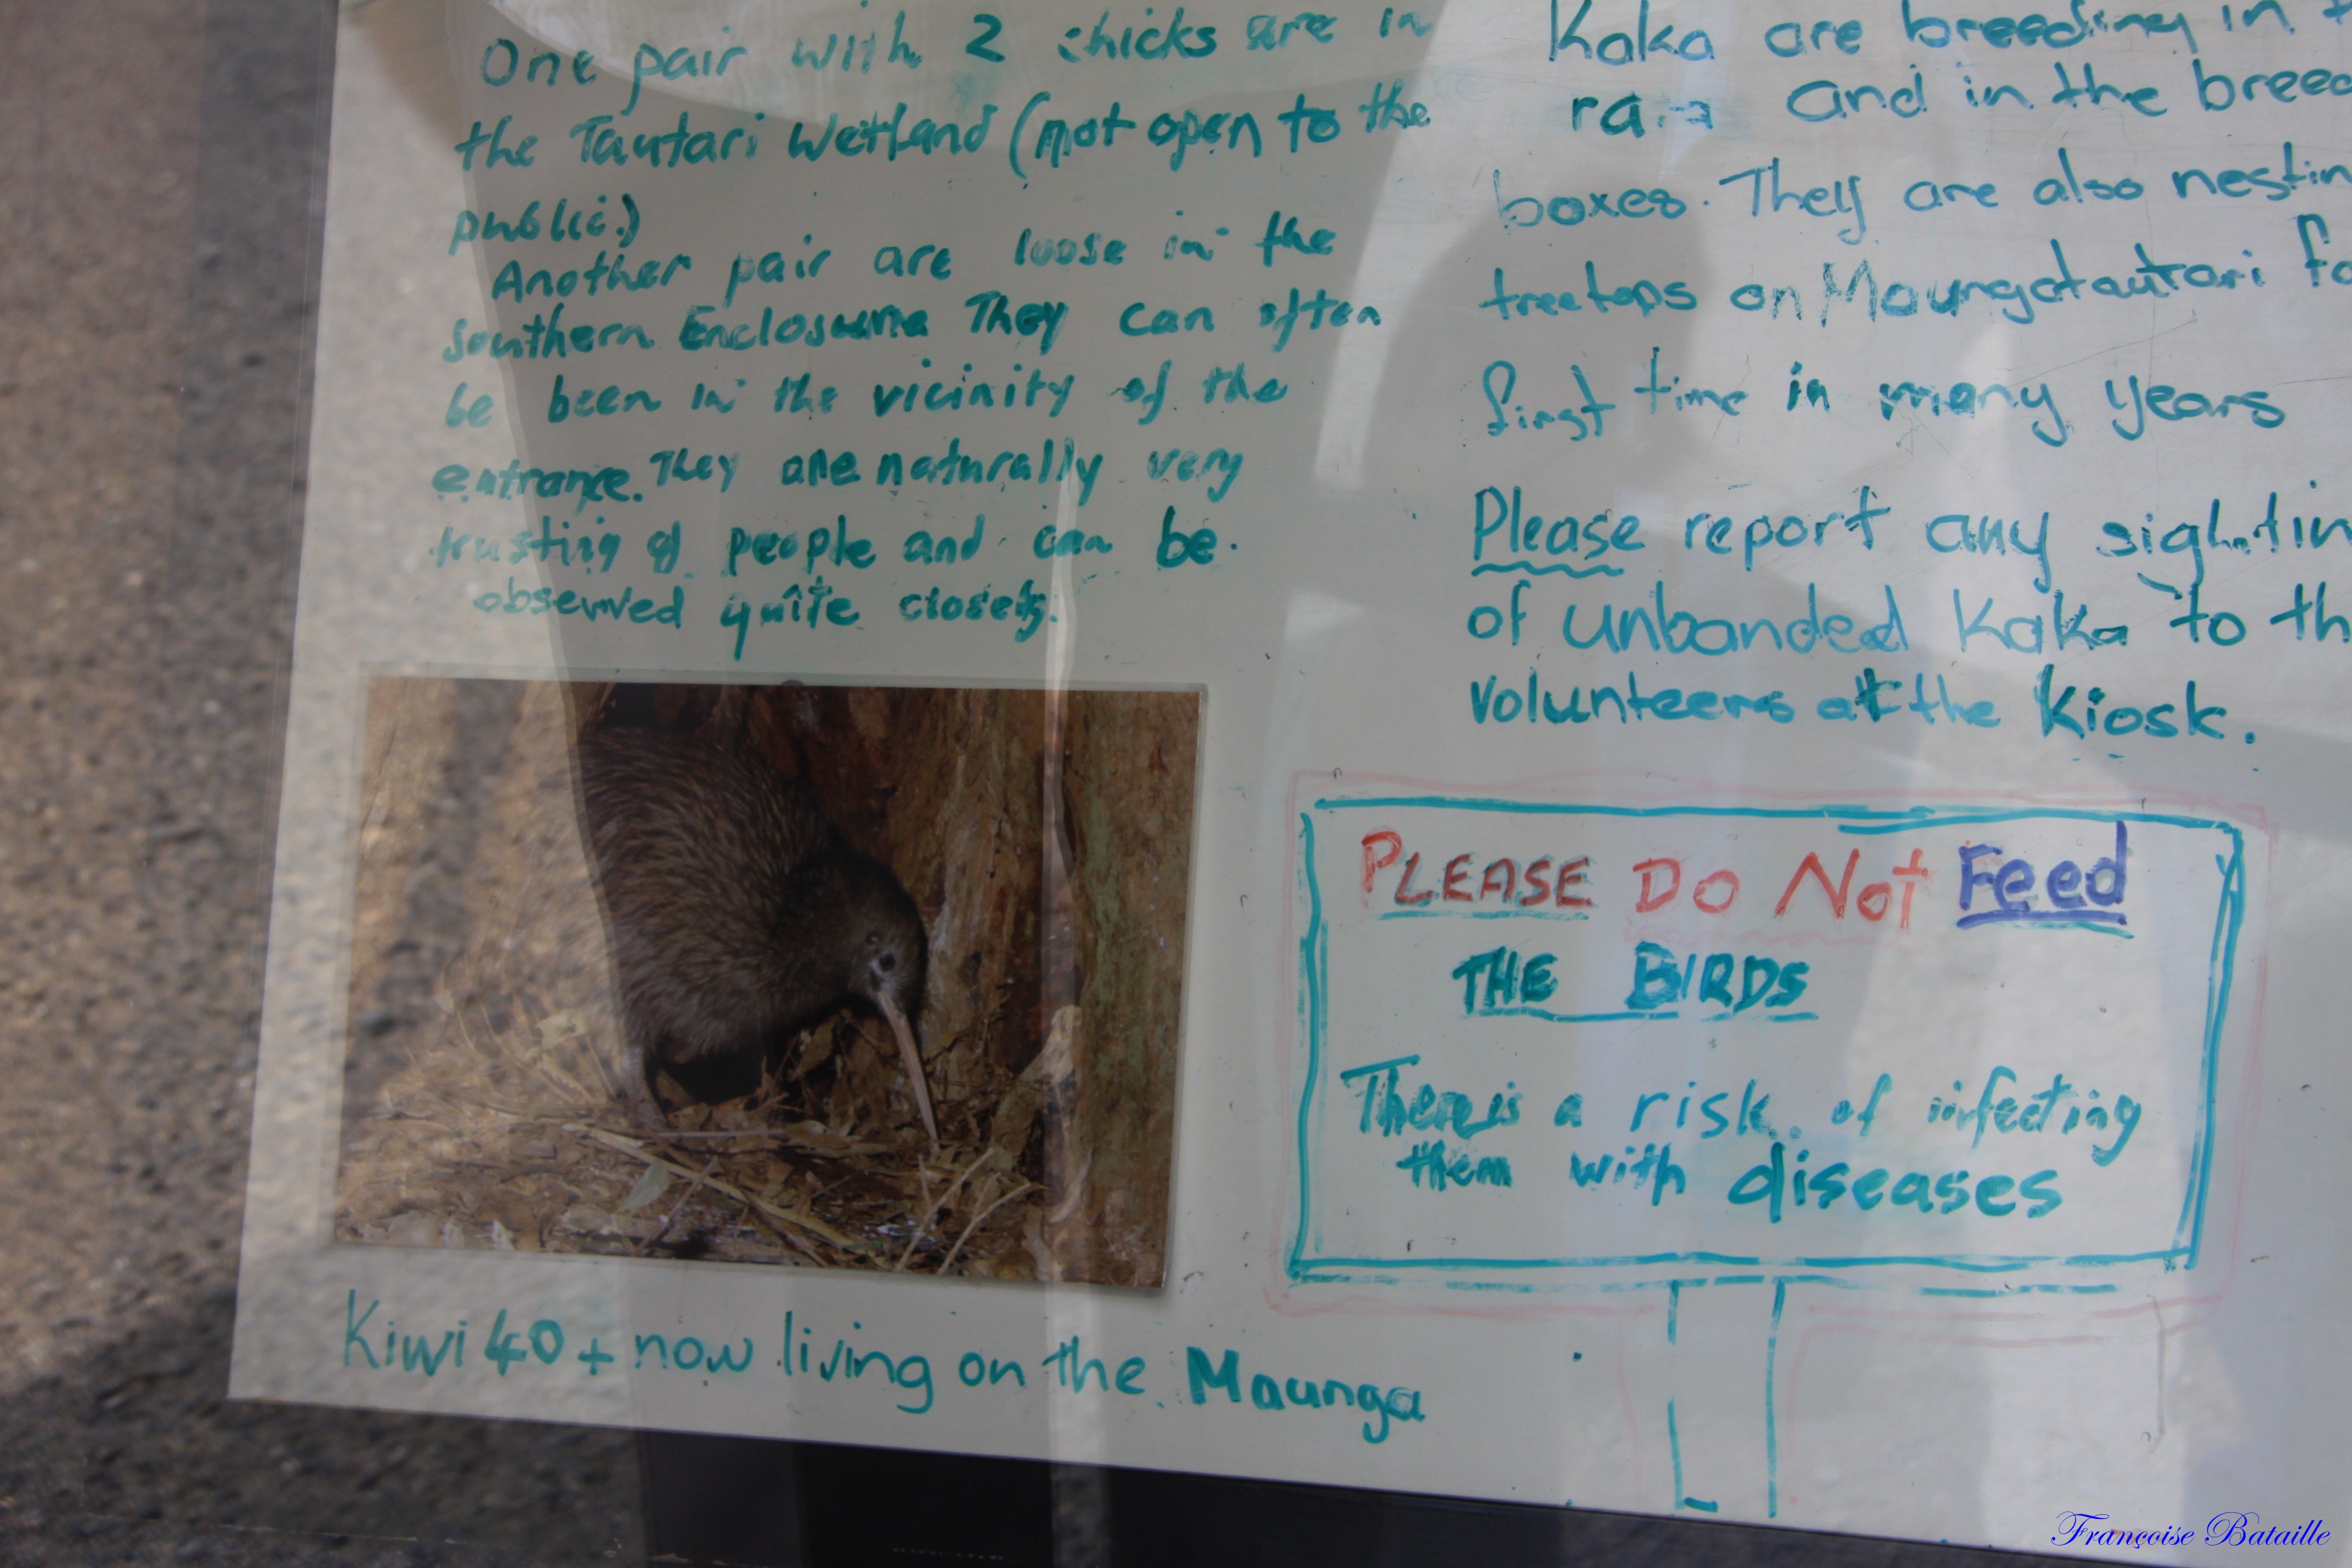 One pair with 2 chicks are in
the Tautari Wetland (not open to the
public.)
Another pair are loose in the
Southern Enclosure They can often
be been in the vicinity of the
entrance. They are naturally very
trusting of people and can be.
observed quite closely.
Kiwi 40+ now living on the Maunga
Kaka are breeding in
and in the breed
boxes. They are also nestin
treetops on Maungatautari fo
first time in many years
Please report any sightin
of unbanded Kaka to th
volunteers at the Kiosk.
PLEASE DO Not Feed
THE BIRDS
There is a risk of infecting
them with diseases
Françoise Bataille